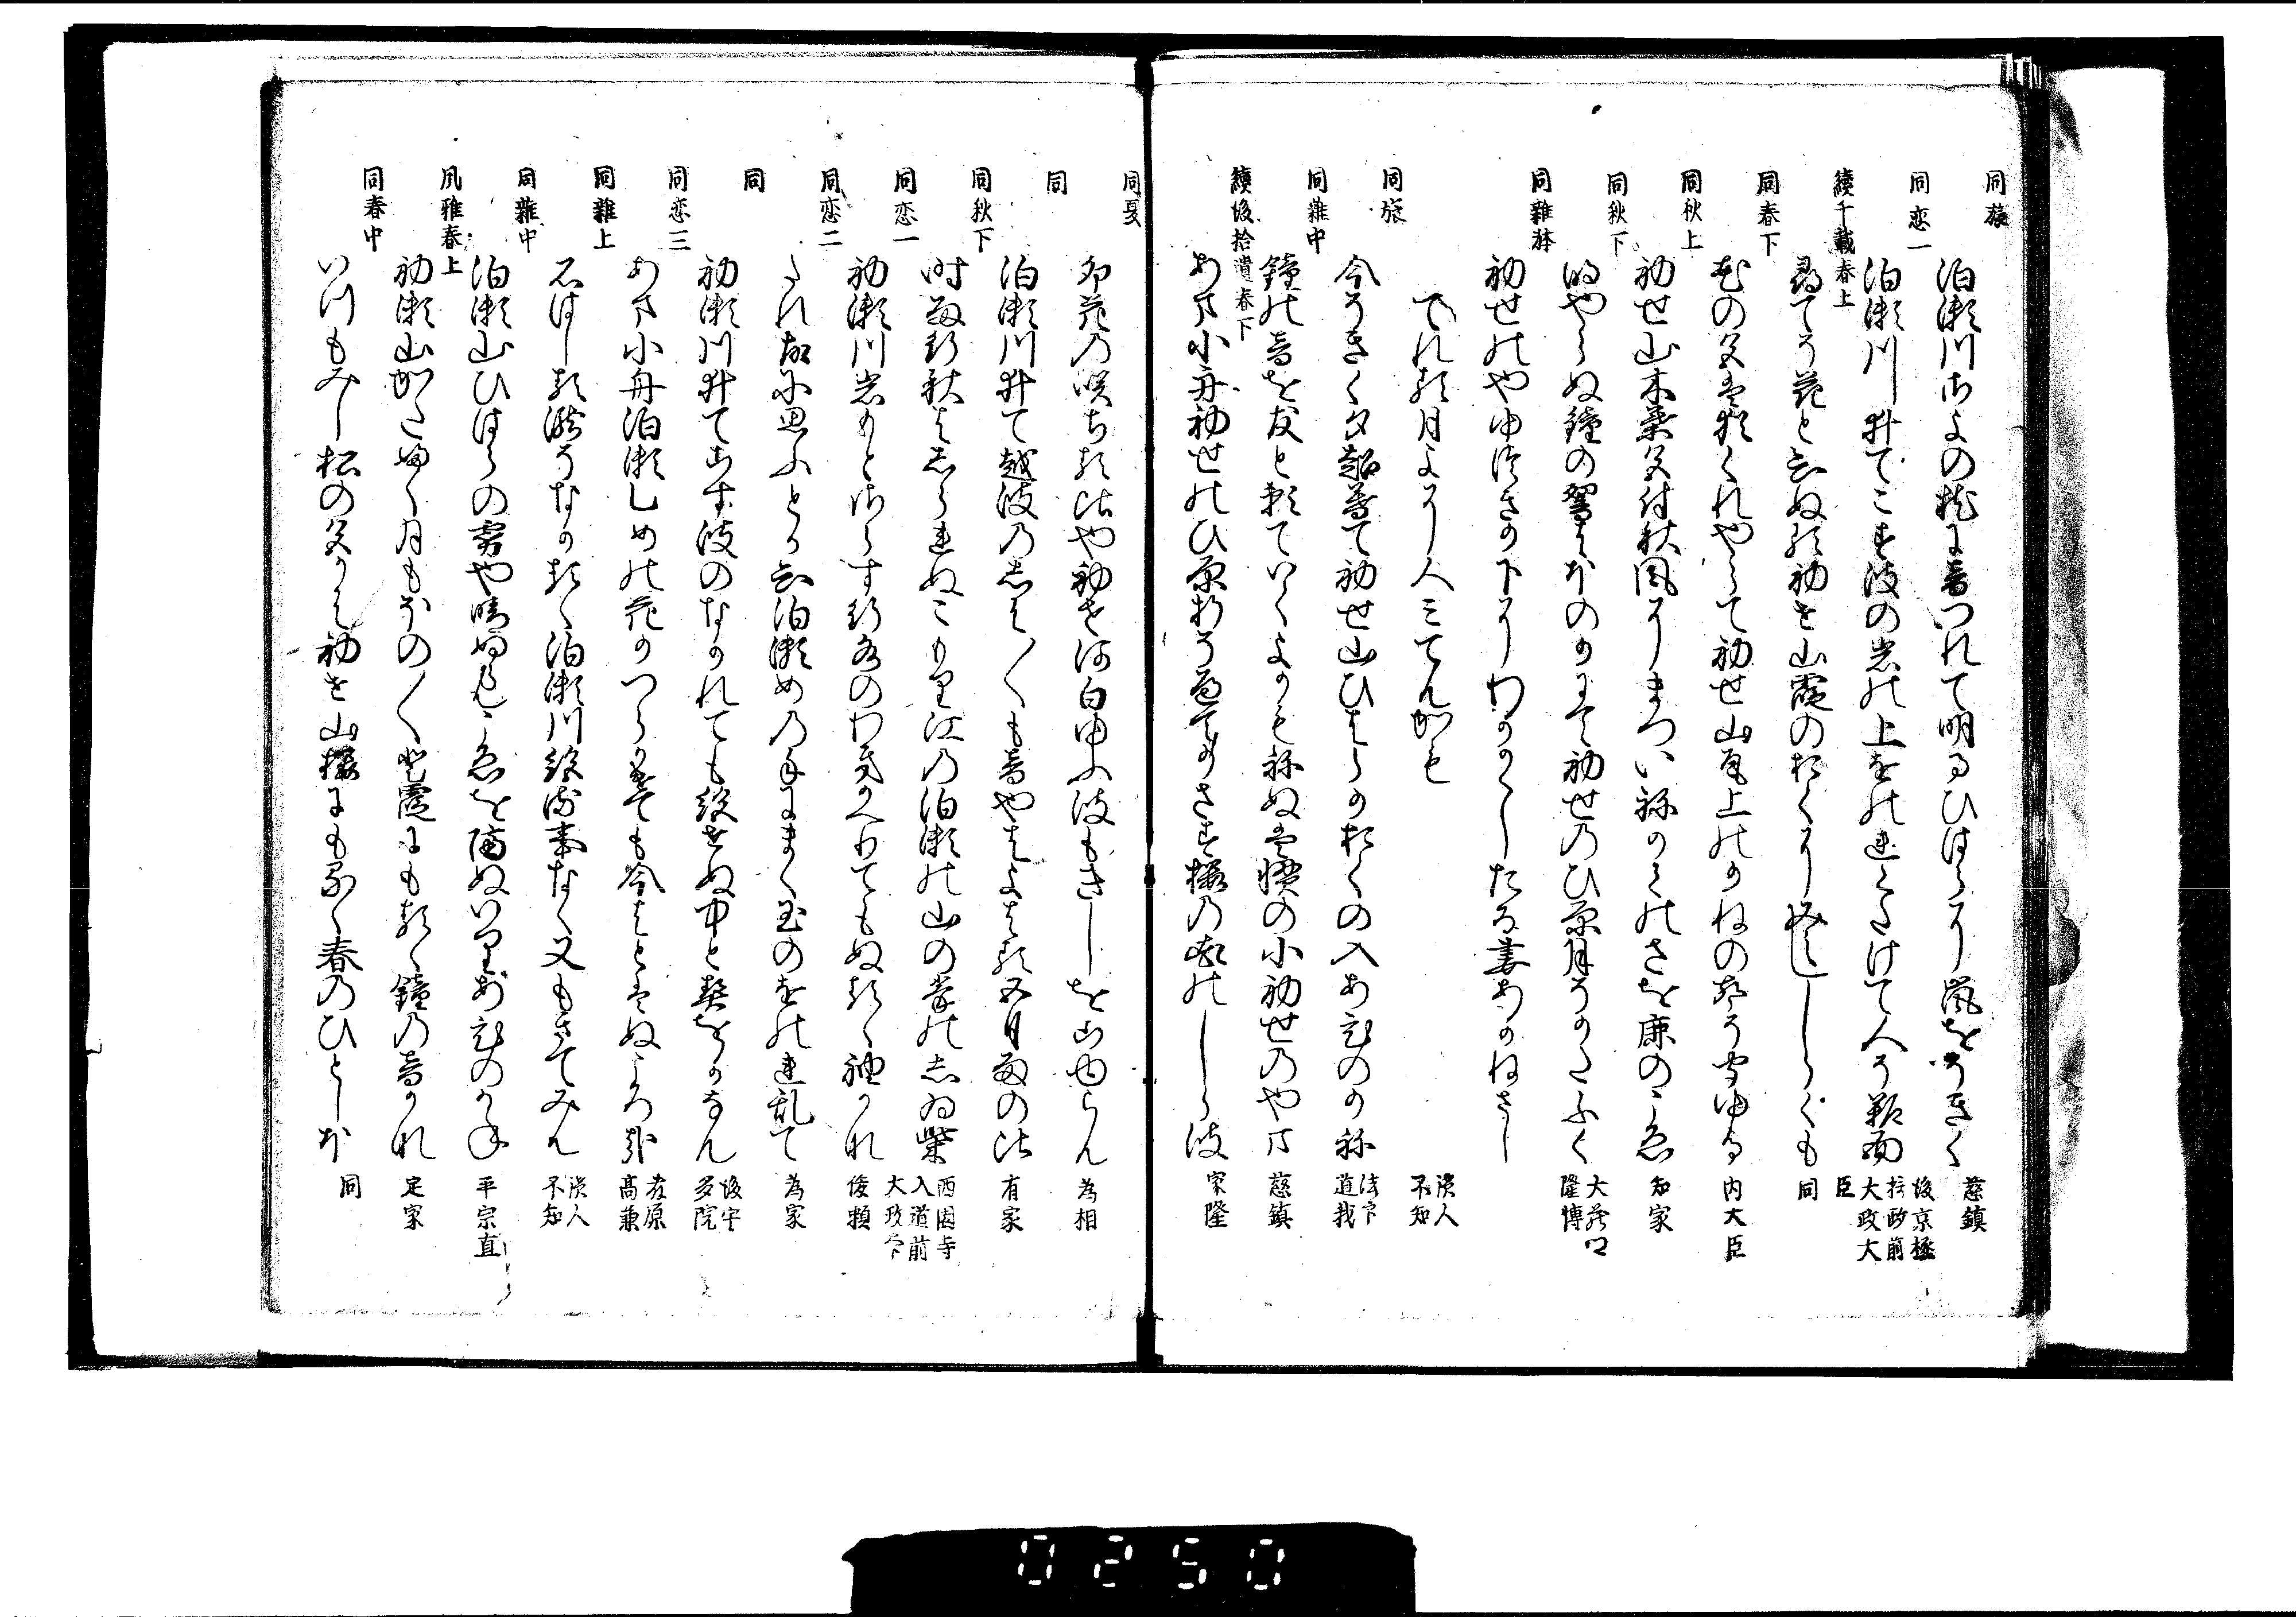 同旅
泊瀬川さよの枕に音つれて明るひはらに嵐をそきく 慈鎮
同恋一
泊瀬川井てこす波の岩の上をのれくたけて人そ難面 後京極摂政前大政大臣
続千載春上
尋てそ花と知ぬる初せ山霞のおくにみえししら雲も 同
同春下
花の色は猶くれやらて初せ山尾上のかねの声そ聞ゆる 内大臣
同秋上
初せ山木葉色付秋風にまついねかてのさを鹿のこゑ 知家
同秋下
明やらぬ鐘の響はほのかにて初世のひ原月そかたふく 大蔵卿隆博
同雑躰
初世のやゆつきか下にわかかくしたる妻あかねさし
てれる月よに人みてんかも 読人不知
同旅
今そきく夕越暮て初世山ひはらのおくの入あひのかね 法印道我
同雑中
鐘の音を友と頼ていくよかもねぬは慣の小初世のやま 慈鎮
続後拾遺春下
あま小舟初世のひ原折そへてかさす桜の花のしら波 家隆
同夏
卯花の咲ちる比や初せ河白ゆふ波もきしを山由らん 為相
同
泊瀬川井て越波のしはしはも音やはよはる五月雨の比 有家
同秋下
時雨行秋はしられぬこもり江の泊瀬の山の峯のしゐ柴 西園寺入道前大政大臣
同恋一
初瀬川岩もとさらす行水のわきかへりてもぬるる袖かな 俊頼
同恋二
たれ故に思ふとか知泊瀬めの手にまく玉のをのれ乱て 為家
同
初瀬川井てこす波のなかれても絶せぬ中と契をかなん 後宇多院
同恋三
あま小舟泊瀬しめの花かつらかけても今はとはぬころ哉 藤原高兼
同雑上
石はしる瀧そなかるる泊瀬川絶る事なく又もきてみん 読人不知
同雑中
泊瀬山ひはらの雰や晴ぬらんこゑを隔ぬいりあひのかね 平宗直
風雅春上
初瀬山かたふく月もほのほのと霞にもるる鐘の音かな 定家
同春中
いつもみし松の色かは初せ山桜にもるる春のひとしほ 同